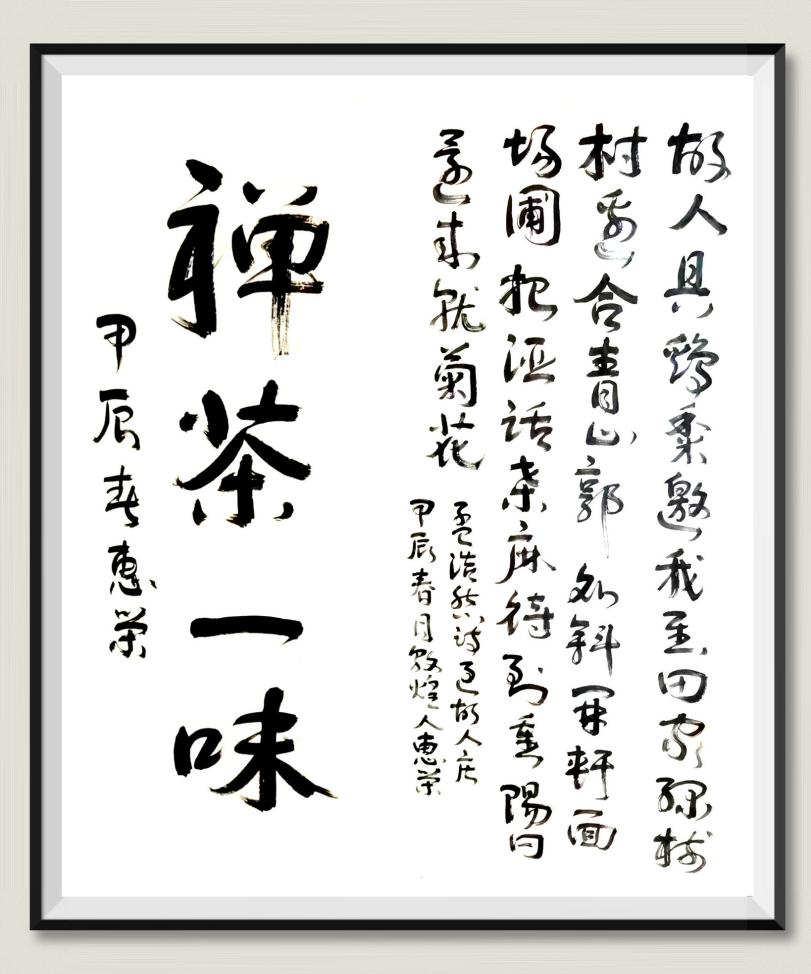 故人具鷄黍邀我至田家绿樹
村邊合青山郭外斜開軒面
場圃把酒話桑麻待到重陽日
還来就菊花
孟浩然詩過故人庄
甲辰春月敦煌人惠荣
禅茶一味
甲辰春惠荣